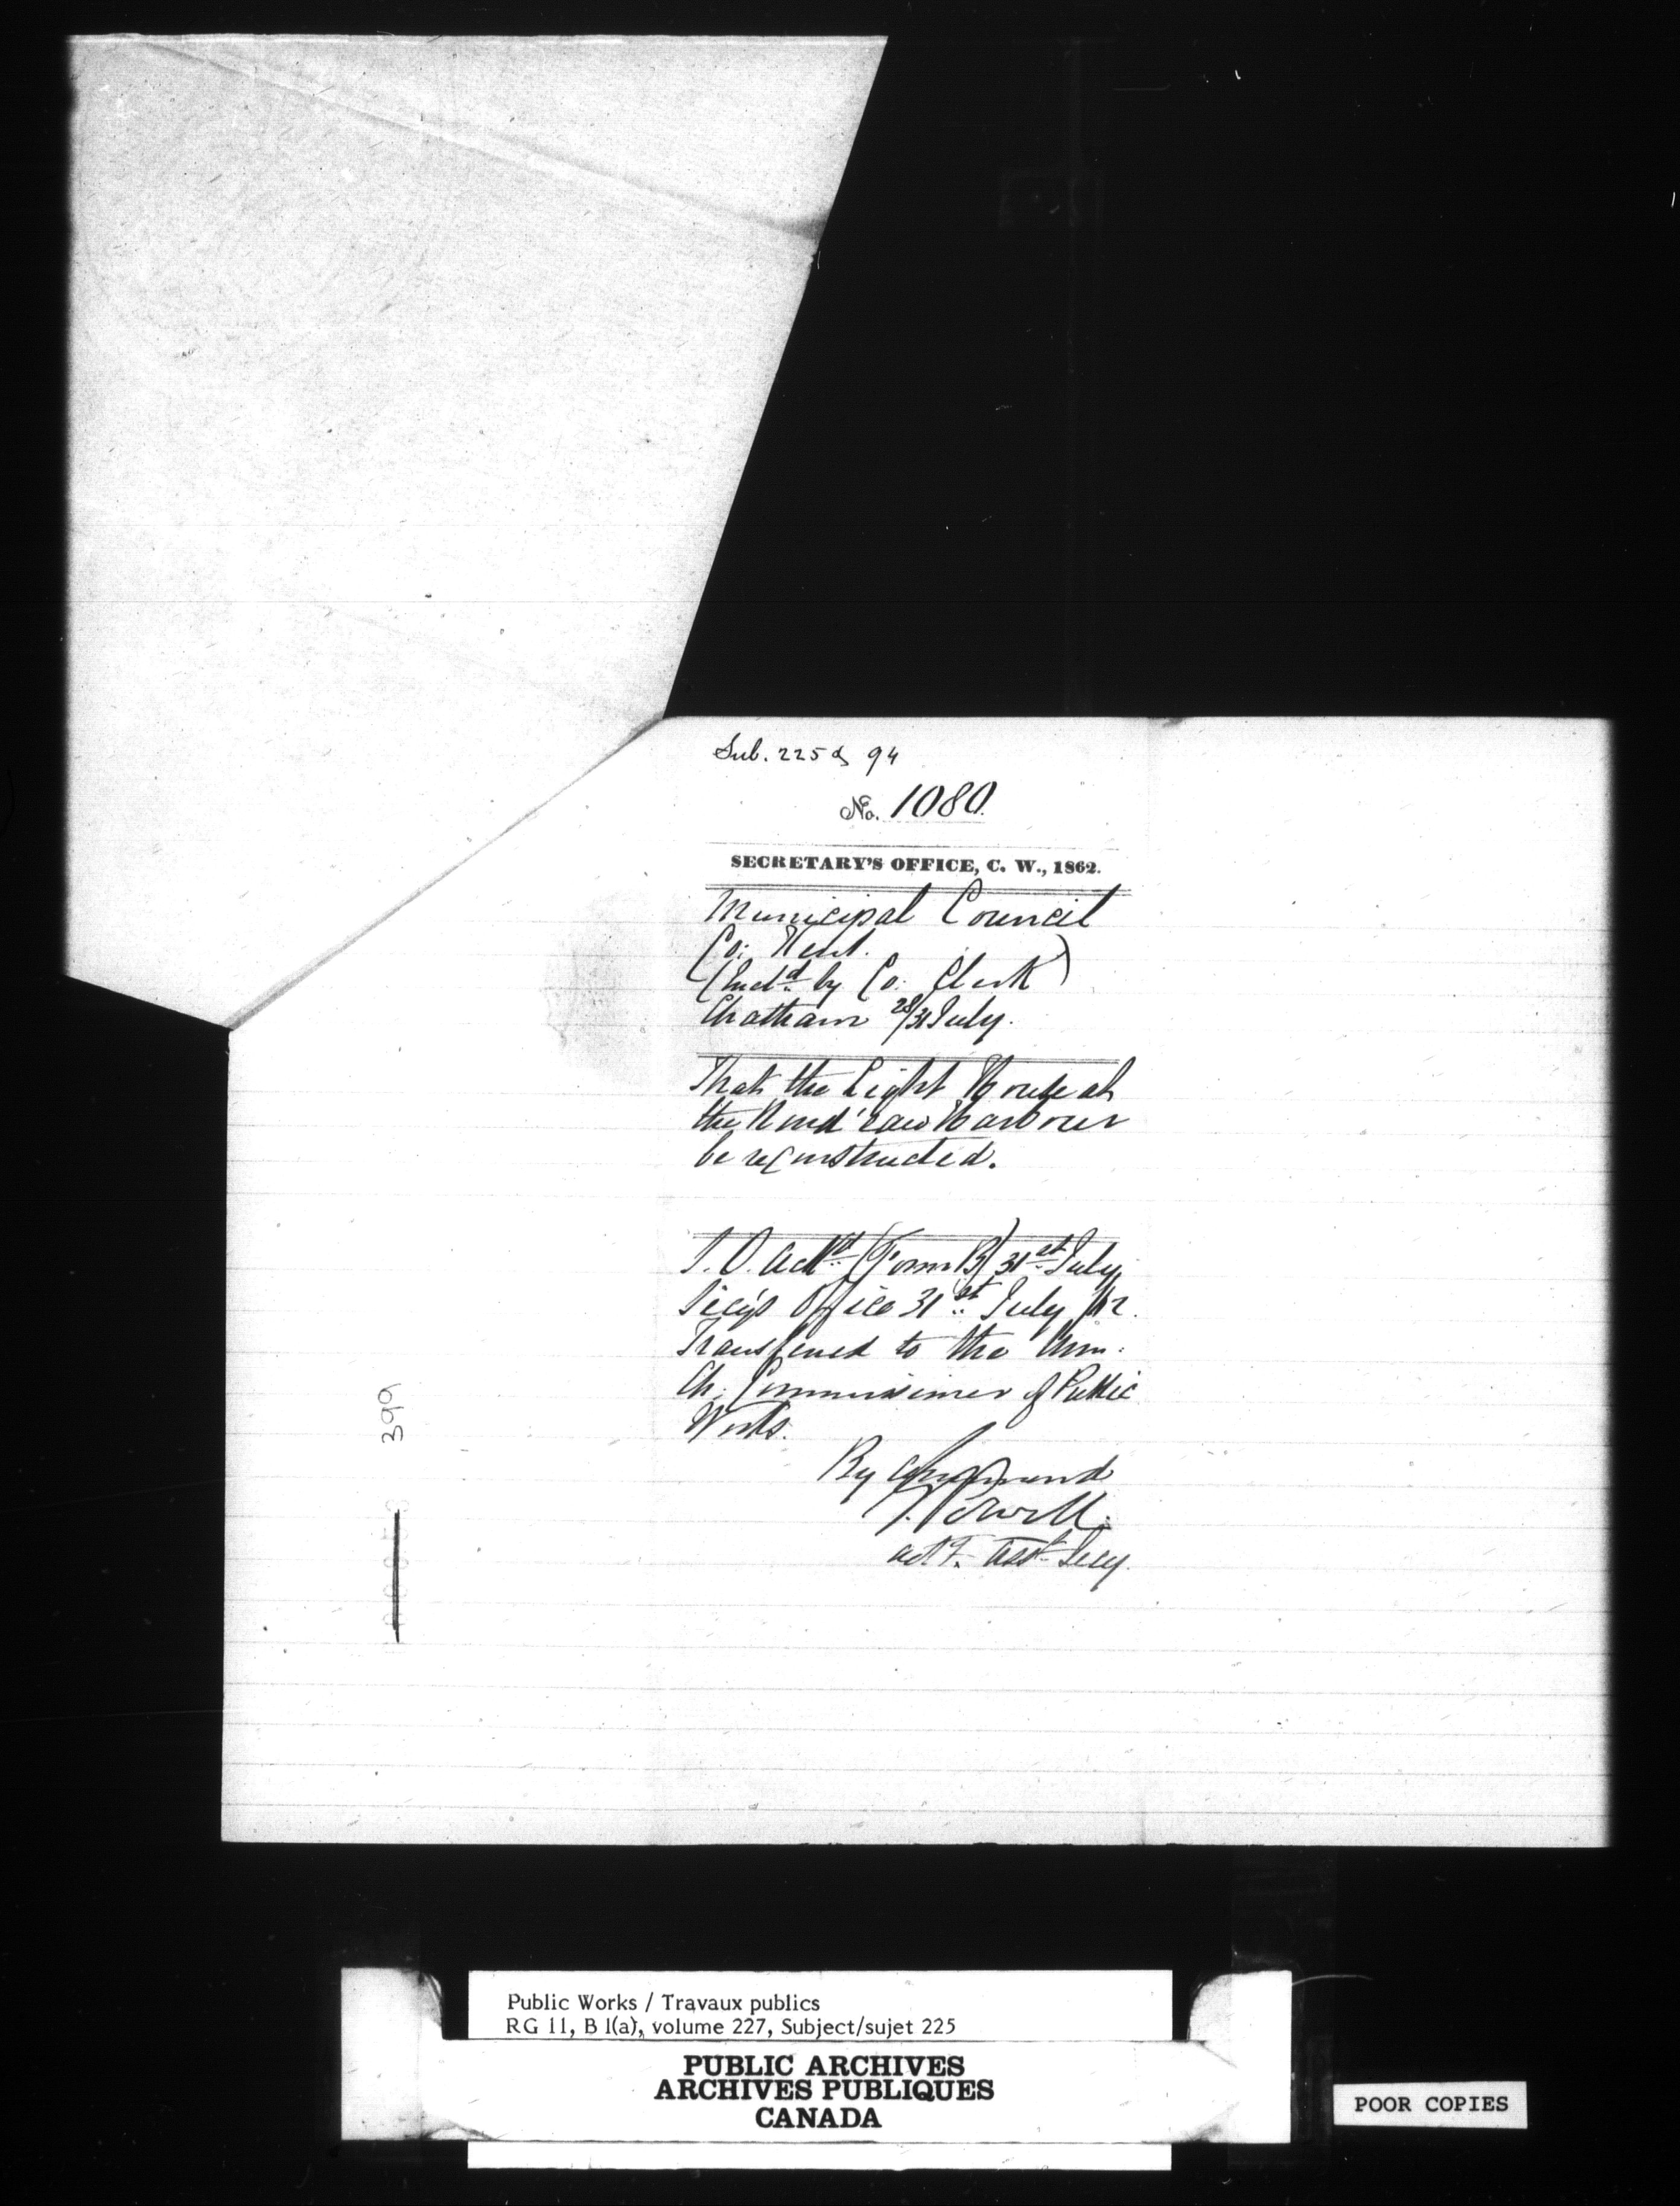 Sub. 225 & 94
No. 1080.
SECRETARY'S OFFICE, C. W., 1862.
Municipal Council
Co: Kent.
(Encl.d by Co. Clerk)
Chatham 28/31 July.
That the Light House at
the Rond'eau Harbour
be reconstructed.
(Form B) 31st July
Secy's Office 31st July /62.
Transferred to the Hon:
Ch: Commissioner of Public
Works.
By Command
Powell.
Asst. Secy.
399
Public Works / Travaux publics
RG 11, B 1(a), volume 227, Subject/sujet 225
PUBLIC ARCHIVES
ARCHIVES PUBLIQUES
CANADA
POOR COPIES